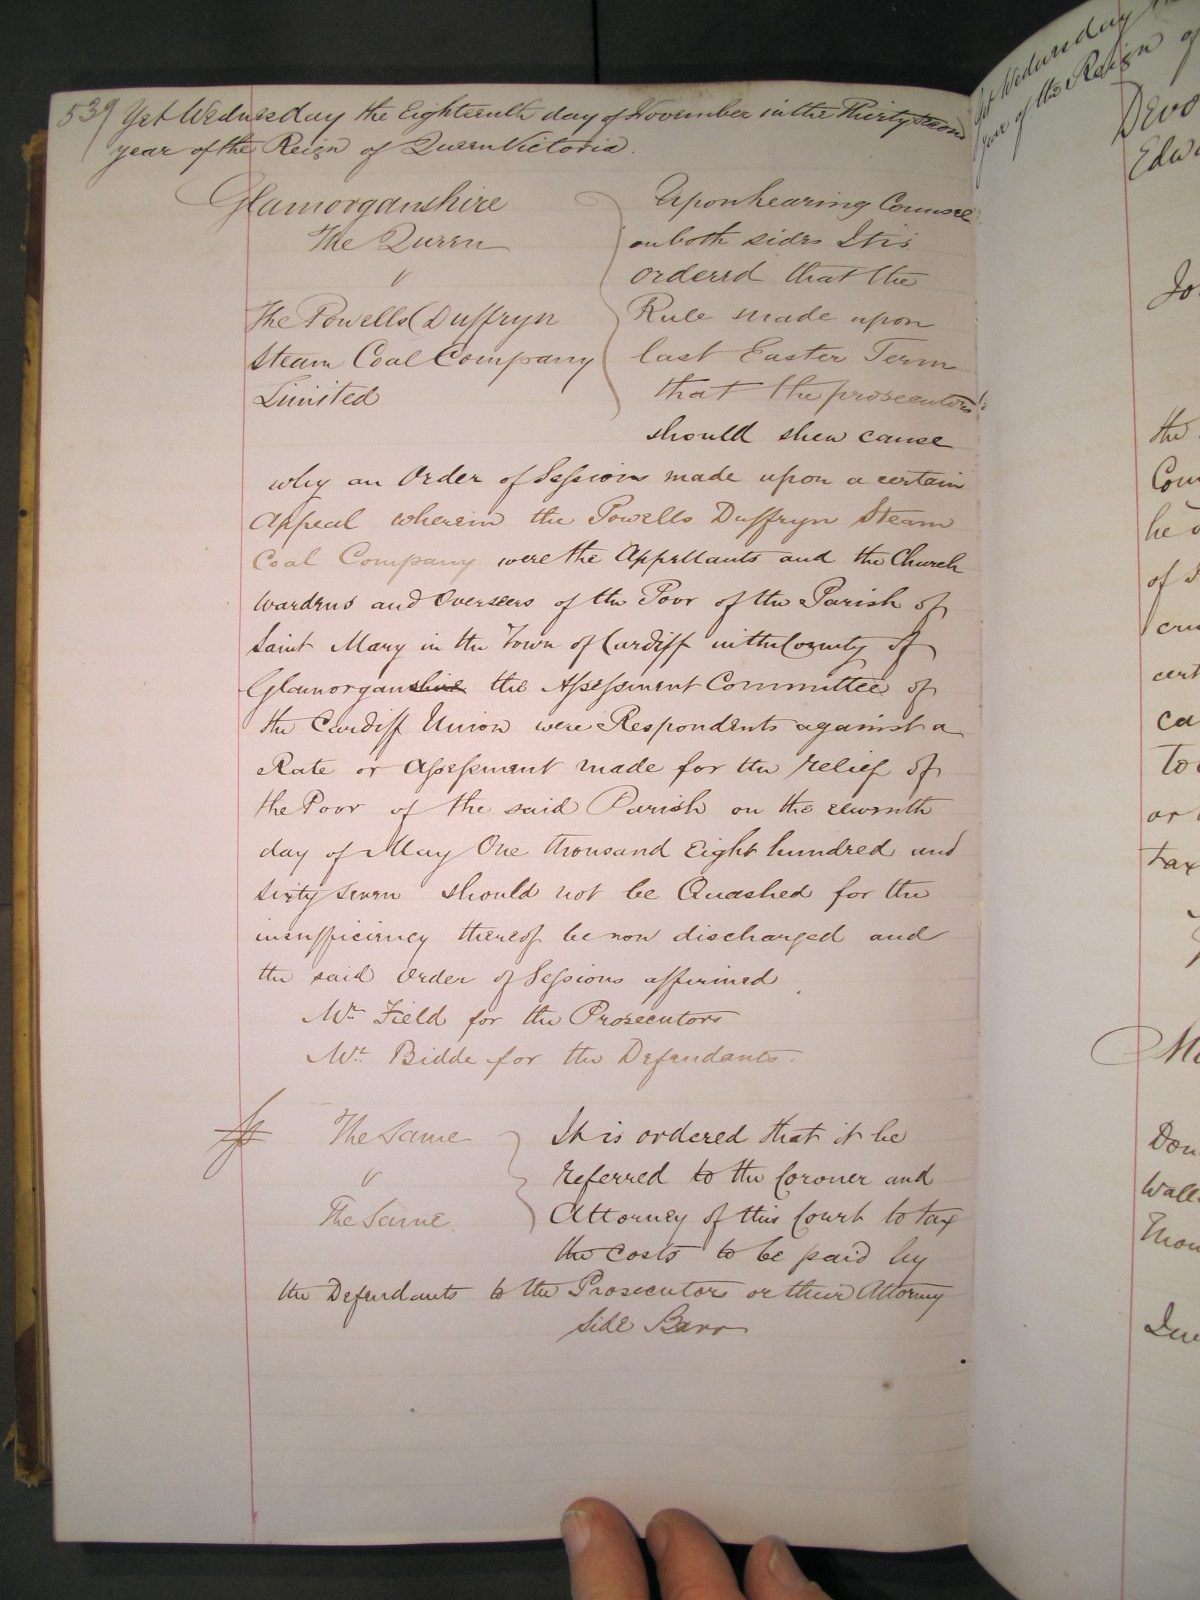 539 Yet Wednesday the Eighteenth day of November in the Thirty second
year of the Reign of Queen Victoria.
Glamorganshire
The Queen
v
The Powells Duffryn
Steam Coal Company
Limited
Upon hearing Counsel
on both sides It is
ordered that the
Rule made upon
last Easter Term
that the prosecutors
should shew cause
why an Order of Sessions made upon a certain
Appeal wherein the Powells Duffryn Steam
Coal Company were the Appellants and the Church
wardens and Overseers of the Poor of the Parish of
Saint Mary in the Town of Cardiff in the County of
Glamorganshire the Assessment Committee of
the Cardiff Union were Respondents against a
Rate or Assessment made for the relief of
the Poor of the said Parish on the
day of May One thousand Eight hundred and
sixty seven should not be Quashed for the
insufficiency thereof be now discharged and
the said Order of Sessions affirmed
Mr. Field for the Prosecutors
Mr. Bidde for the Defendants.
The Same
v
The Same.
It is ordered that it be
referred to the Coroner and
Attorney of this Court to tax
the costs to be paid by
the Defendants to the Prosecutors or their Attorney
Side Barr
Yet Wednesday
year of the Reign of
Devo
Edwa
Jo
the
Coun
he
of
cru
cert
ca
to
or
tax
Mc
Don
Wall
Thom